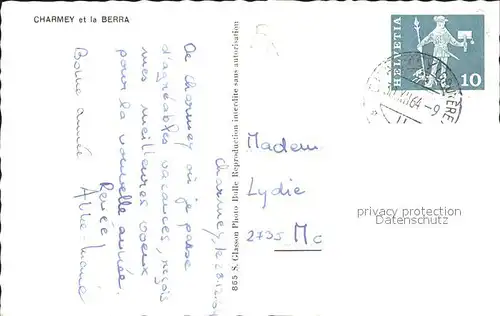 CHARMEY et la BERRA
Charmey, le 28.12.64
De Charmey où je passe
d'agréables vacances, reçois
mes meilleures voeux
pour la nouvelle année.
Renée
Bonne année
865 S. Glasson Photo Bulle Reproduction interdite sans autorisation
HELVETIA
10
64-9
Madem
Lydie
2735 M
privacy protection
Datenschutz